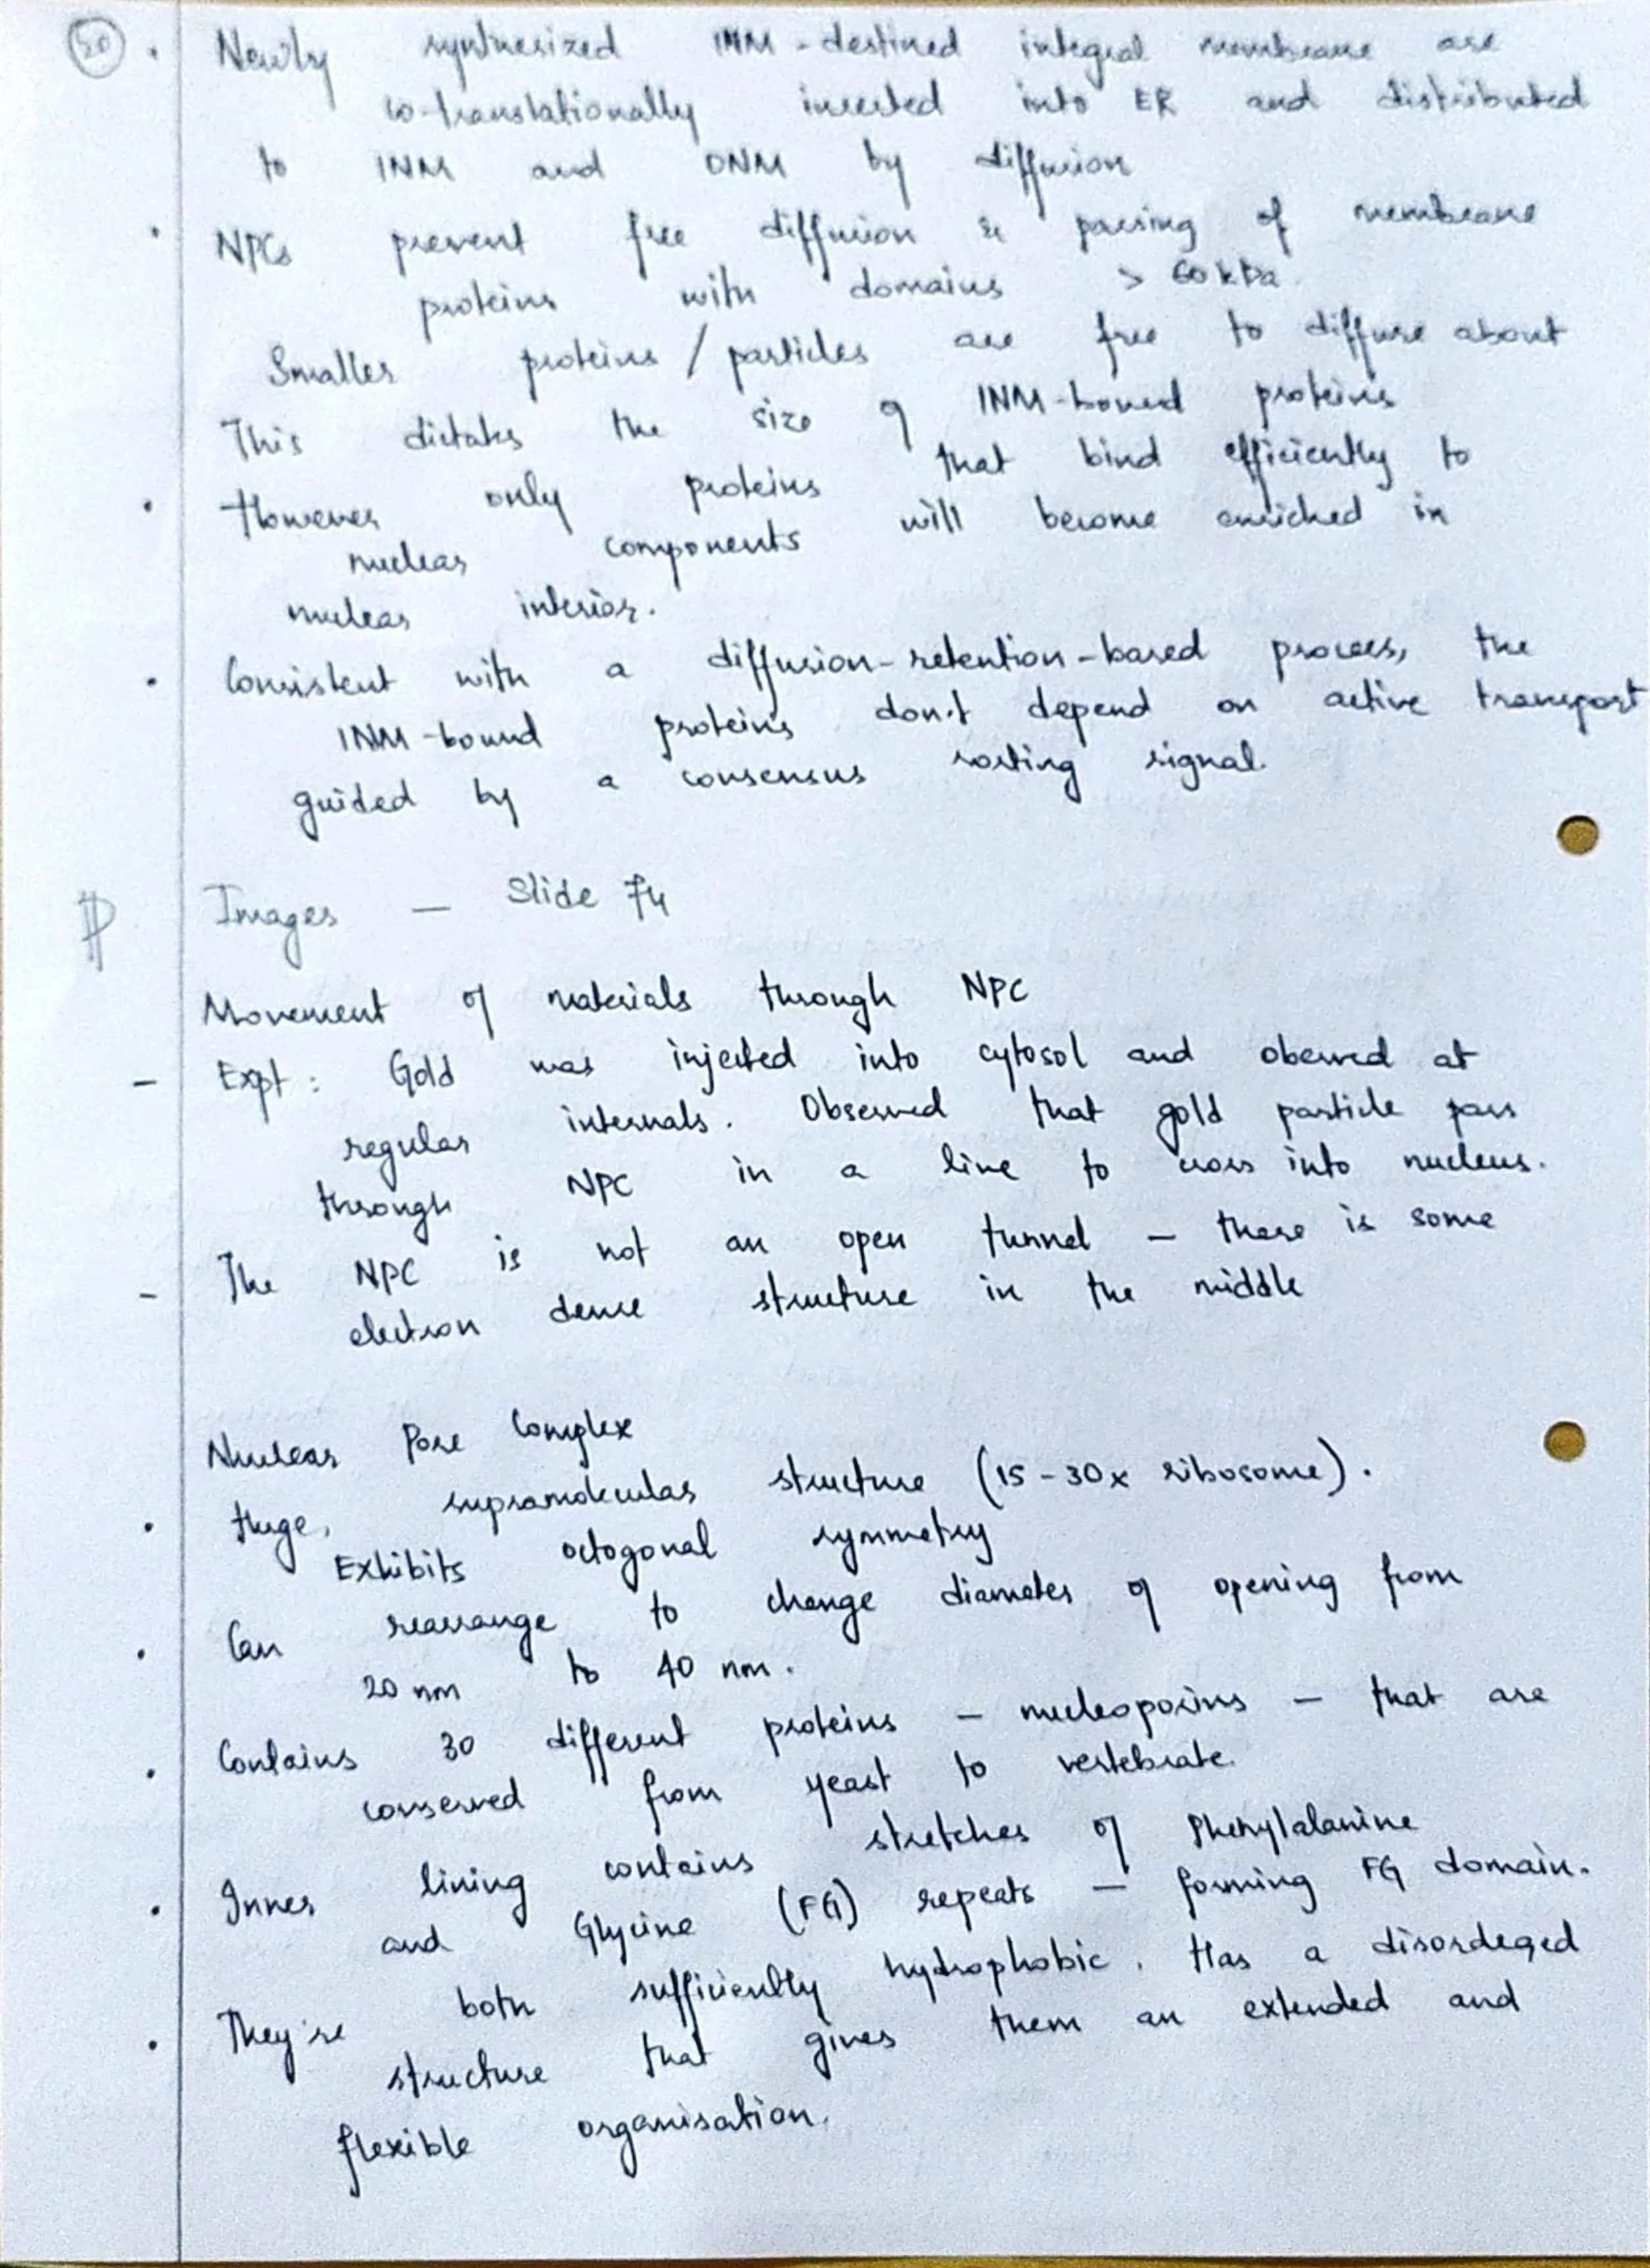 50 . Newly synthesized INM-destined integral membrane are
co-translationally inserted into ER and distributed
to INM and ONM by diffusion
. NPCs prevent free diffusion & passing of membrane
proteins with domains > 60 kDa.
Smaller proteins / particles are free to diffuse about
This dictates the size of INM-bound proteins
. However only proteins that bind efficiently to
nuclear components will become enriched in
nuclear interior.
. Consistent with a diffusion-retention-based process, the
INM-bound proteins don't depend on active transport
guided by a consensus sorting signal.
Images — Slide 74
Movement of materials through NPC
- Expt : Gold was injected into cytosol and oberved at
regular intervals. Observed that gold particle pass
through NPC in a line to cross into nucleus.
- The NPC is not an open tunnel — there is some
electron dense structure in the middle
Nuclear Pore Complex
. Huge, supramolecular structure (15-30x ribosome).
Exhibits octogonal symmetry
. Can rearrange to change diameter of opening from
20 nm to 40 nm.
. Contains 30 different proteins — nucleoporins — that are
conserved from yeast to vertebrate.
. Inner lining contains stretches of Phenylalanine
and Glycine (FG) repeats — forming FG domain.
. They're both sufficiently hydrophobic. Has a disordeged
structure that gives them an extended and
flexible organisation.